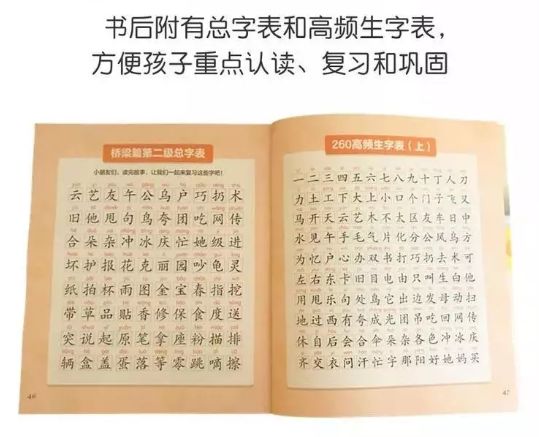 书后附有总字表和高频生字表，
方便孩子重点认读、复习和巩固
桥梁篇第二级总字表
小朋友们，读完故事，让我们一起来复习这些字吧！
云艺友午公鸟户巧扔术
旧他甩句乌夸团吃网传
合朵杂冲冰庆忙她级进
坏护报花克丽园吵龟灵
纸拍杯雨图金宝春指挖
带草品贴香修保食度送
突说起原笔拿座粉描排
辆盒盖蛋落等零跳嘀擦
46
260高频生字表（上）
一二三四五六七八九十丁人刀
力土工下大上小口个门子飞叉
马开天云艺木不太区友车日中
水见午手毛气片化分公风乌方
为忆户心办双书打巧扔去术可
左右东卡旧目电由只叫生白他
用甩乐句处鸟它出边发母动扫
地过西有夸成光团吊吃回网传
休自后会合伞朵杂各色冲冰庆
齐交衣问汗忙字那阳好她妈买
47